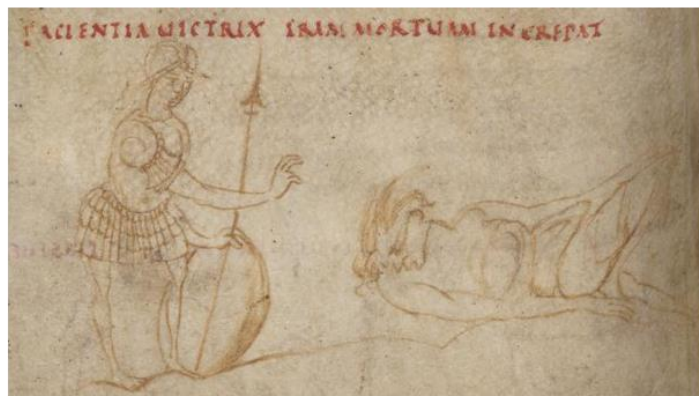 PACIENTIA UICTRIX IRAM MORTUAM INCREPAT